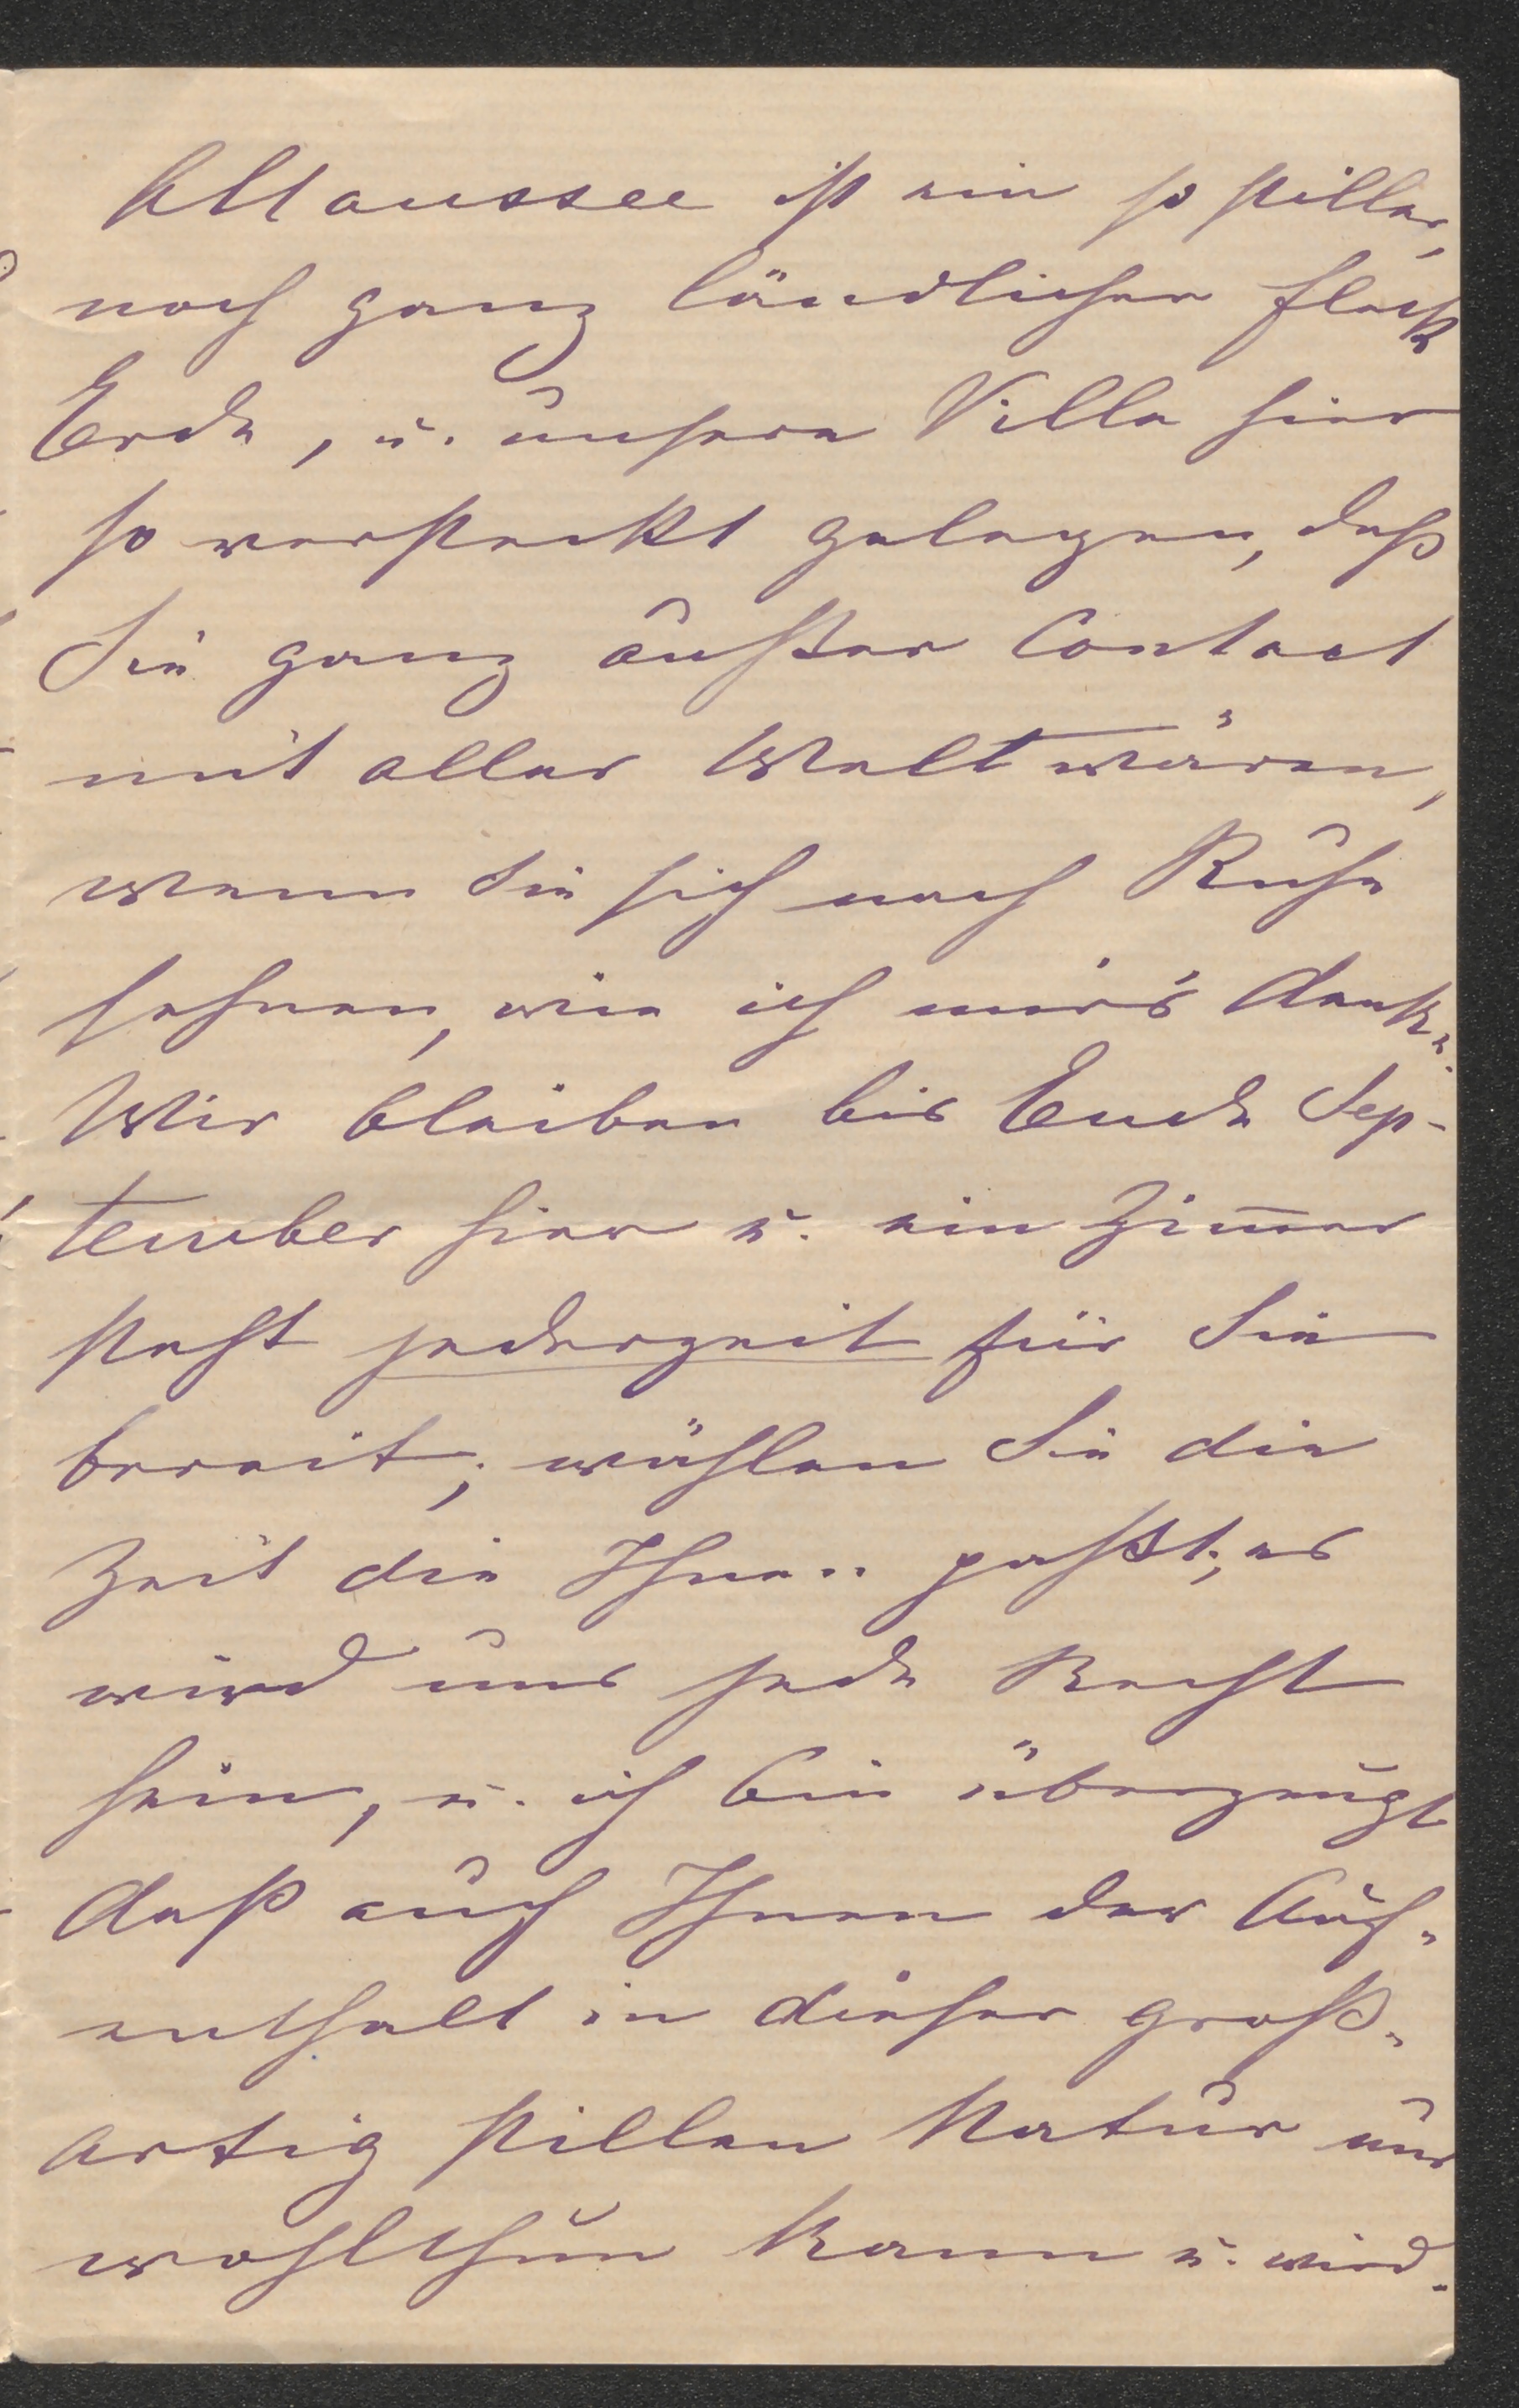 Altaussee ist ein so stiller,
noch ganz ländlicher Fleck
Erde, u. unsere Villa hier
so versteckt gelegen, daß
Sie ganz außer Contact
mit aller Welt wären,
wenn Sie sich nach Ruhe
sehnen, wie ich mir's denke.
Wir bleiben bis Ende Sep-
tember hier u. ein Zimmer
steht jederzeit für Sie
bereit; wählen Sie die
Zeit die Ihnen paßt; es
wird uns jede Recht
sein, u. ich bin überzeugt
daß auch Ihnen der Auf-
enthalt in dieser groß-
artig stillen Natur nur
wohlthun kann u. wird.